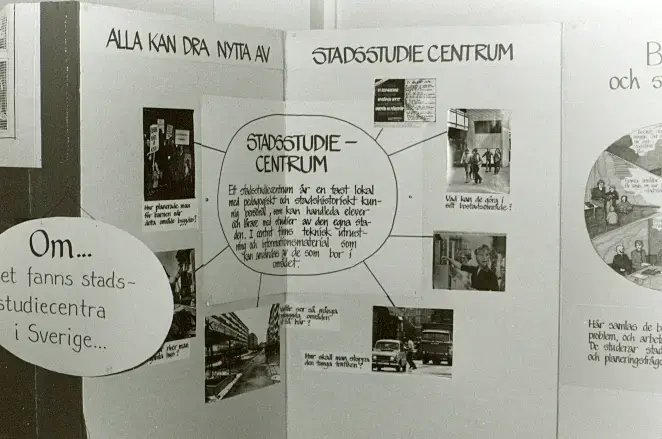 ALLA KAN DRA NYTTA AV
STADSSTUDIECENTRUM
STADSSTUDIE-
CENTRUM
Ett stadsstudiecentrum är en fast lokal
med pedagogiskt och stadshistoriskt kun-
nig personal, som kan handleda elever
och lärare vid studier av den egna sta-
den. I centret finns teknisk utrust-
ning och informationsmaterial som
kan användas av de som bor i
området.
Hur planerade man
för barnen när
detta område byggdes?
Vad kan de göra i
ett bostadsområde?
Om...
et fanns stads-
studiecentra
i Sverige...
man
ser så många
områden
så här?
Hur skall man stoppa
den tunga trafiken?
B
och s
Här samlas de b
problem, och arbet
De studerar stad
och planeringsfråg